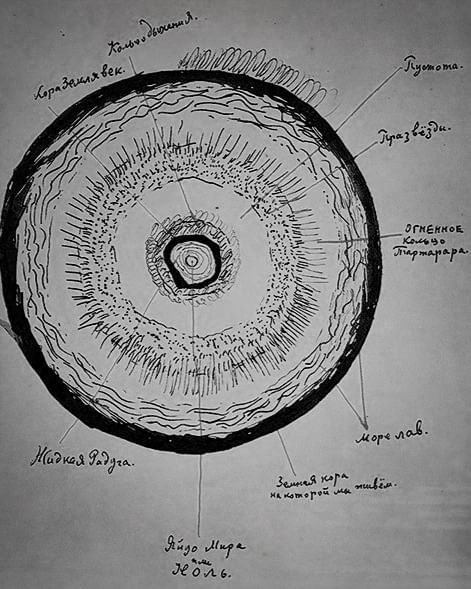 Кольцо дыхания.
Кора Земля век.
Пустота.
Празвёзды.
ОГНЕННОЕ
Кольцо
Тартарара.
Море лав.
Земная кора
на которой мы живём.
Жидкая Радуга.
Ядро Мира
или
НОЛЬ.